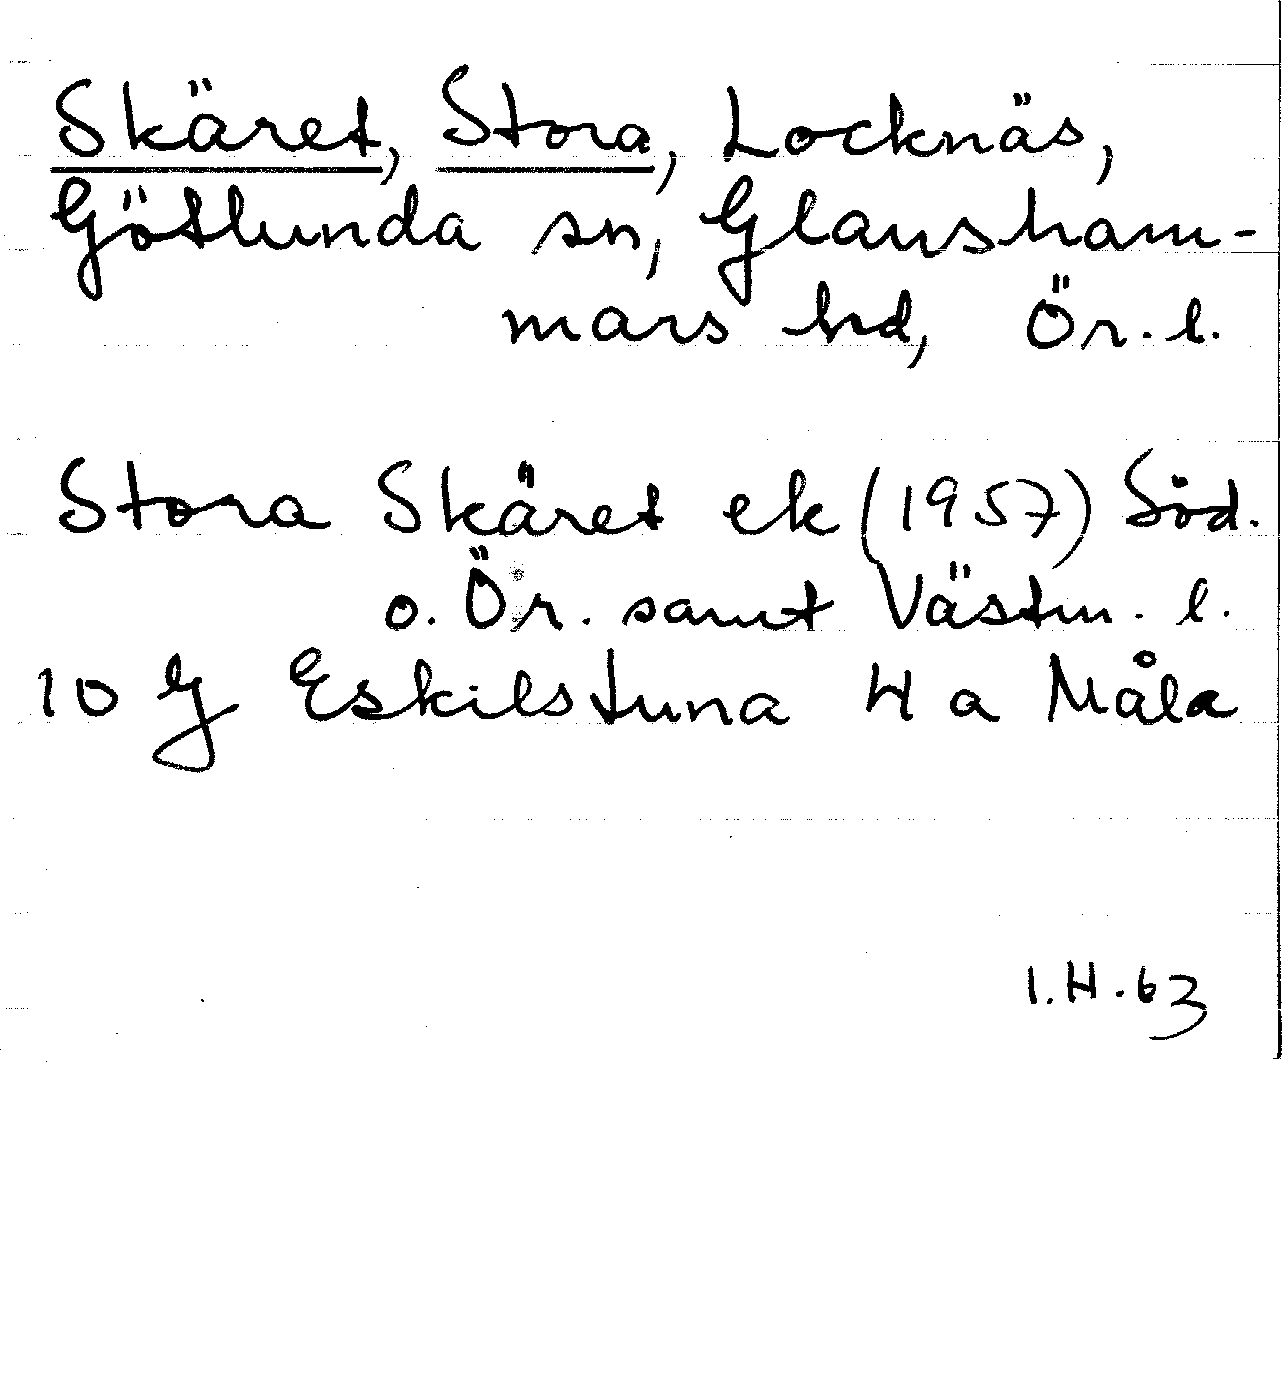 Skäret, Stora, Locknäs,
Götlunda sn, Glansham-
mars hd, Ör. l.
Stora Skäret ek (1957) Söd.
o. Ör. samt Västm. l.
10 G Eskilstuna 4 a Måla
I.H.63